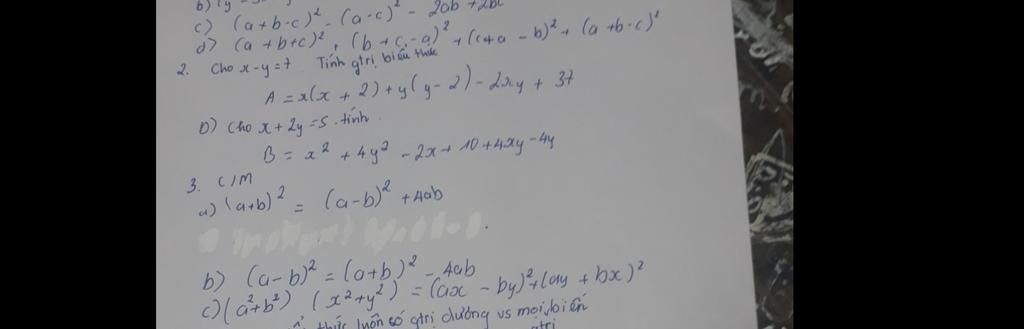 b) (y
c) (a+b-c)² - (a-c)² - 2ab + 2bc
d) (a+b+c)² + (b+c-a)² + (c+a-b)² + (a+b-c)²
2. Cho x-y=7 Tính gtrị biểu thức
A = x(x+2) + y(y-2) - 2xy + 37
b) Cho x+2y=5. tính
B = x² + 4y² - 2x + 10 + 4xy - 4y
3. C/M
a) (a+b)² = (a-b)² + 4ab
b) (a-b)² = (a+b)² - 4ab
c) (a²+b²) (x²+y²) = (ax - by)² + (ay + bx)²
thức luôn có gtrị dương vs mọi biến
gtrị